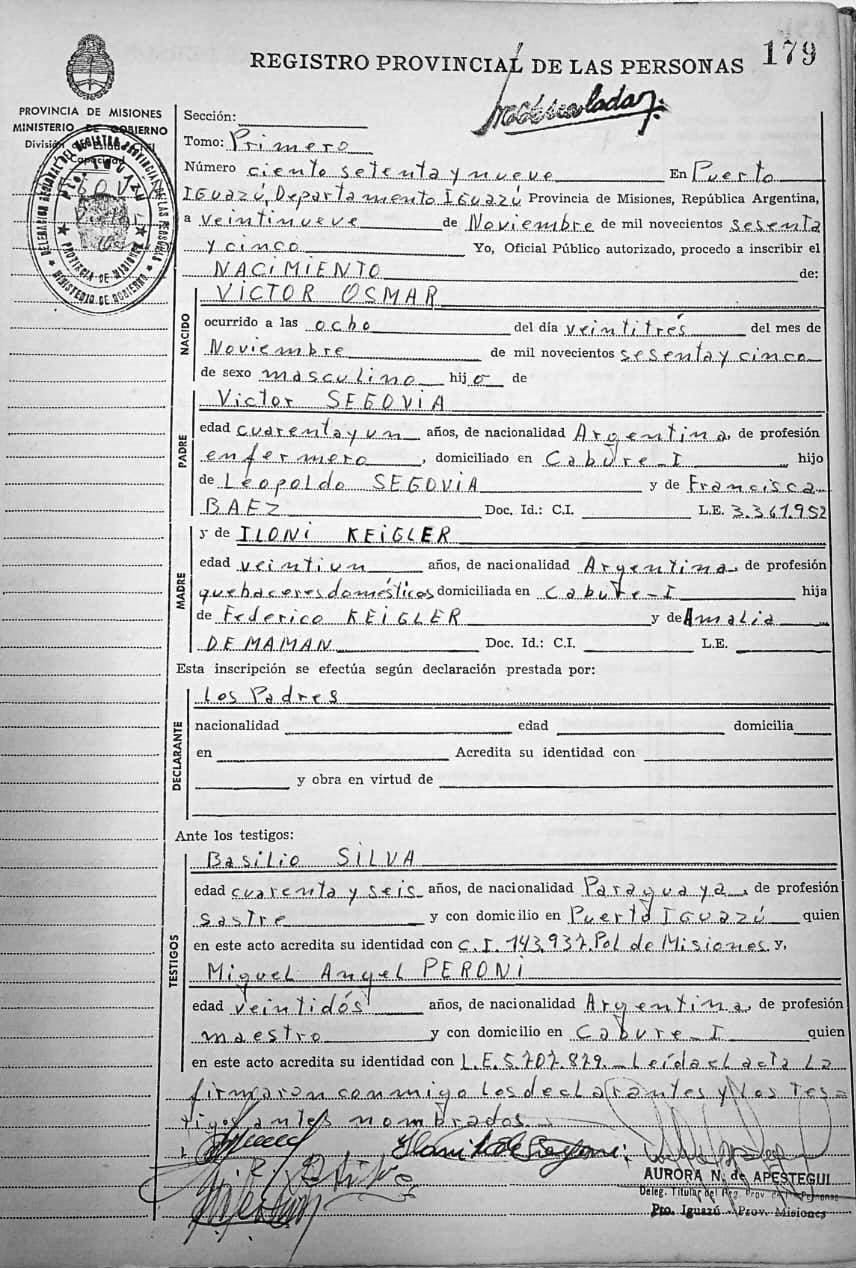 179
REGISTRO PROVINCIAL DE LAS PERSONAS
PROVINCIA DE MISIONES
MINISTERIO DE GOBIERNO
Sección:
Tomo: Primero
Número ciento setenta y nueve En Puerto
IGuazú, Departamento IGuazú Provincia de Misiones, República Argentina,
a veintinueve de Noviembre de mil novecientos sesenta
y cinco Yo, Oficial Público autorizado, procedo a inscribir el
NACIMIENTO de:
NACIDO
VICTOR OSMAR
ocurrido a las ocho del día veintitrés del mes de
Noviembre de mil novecientos sesenta y cinco
de sexo masculino hijo de
PADRE
Victor SEGOVIA
edad cuarenta y un años, de nacionalidad Argentina, de profesión
enfermero, domiciliado en Cabure-I hijo
de Leopoldo SEGOVIA y de Francisca
BAEZ Doc. Id.: C.I. L.E. 3.361.952
MADRE
y de ILONI KEIGLER
edad veintiun años, de nacionalidad Argentina, de profesión
quehaceres domésticos domiciliada en Cabure-I hija
de Federico KEIGLER y de Amalia
DEMAMAN Doc. Id.: C.I. L.E.
Esta inscripción se efectúa según declaración prestada por:
DECLARANTE
Los Padres
nacionalidad edad domicilia
en Acredita su identidad con
y obra en virtud de
Ante los testigos:
TESTIGOS
Basilio SILVA
edad cuarenta y seis años, de nacionalidad Paraguaya, de profesión
sastre y con domicilio en Puerto IGuazú quien
en este acto acredita su identidad con C.I. 143.937. Pol de Misiones y,
Miguel Angel PERONI
edad veintidós años, de nacionalidad Argentina, de profesión
maestro y con domicilio en Cabure-I quien
en este acto acredita su identidad con L.E. 5.707.829. Leída el acta La
firmaran conmigo los declarantes y los tes-
tigos antes nombrados.
AURORA N. de APESTEGUI
Deleg. Titular del Reg. Prov. de las Personas
Pto. Iguazú - Prov. Misiones